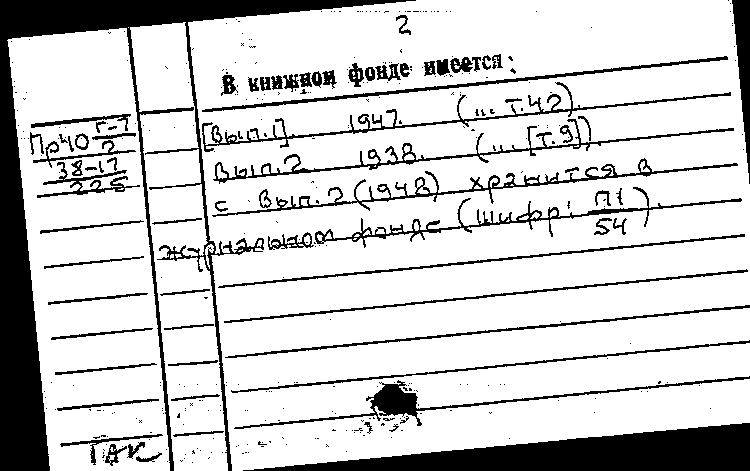 2
В книжном фонде имеется:
Пр40 Г-7/2
[Вып.1]. 1947. (... т.42).
38-17/225
Вып.2 1938. (... [т.9]).
с Вып. 2 (1948) хранится в
журнальном фонде (шифр: П1/54).
ГАК